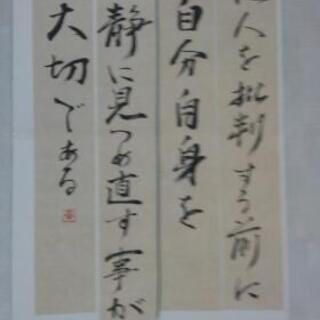 人を批判する前に
自分自身を
静に見つめ直す事が
大切である